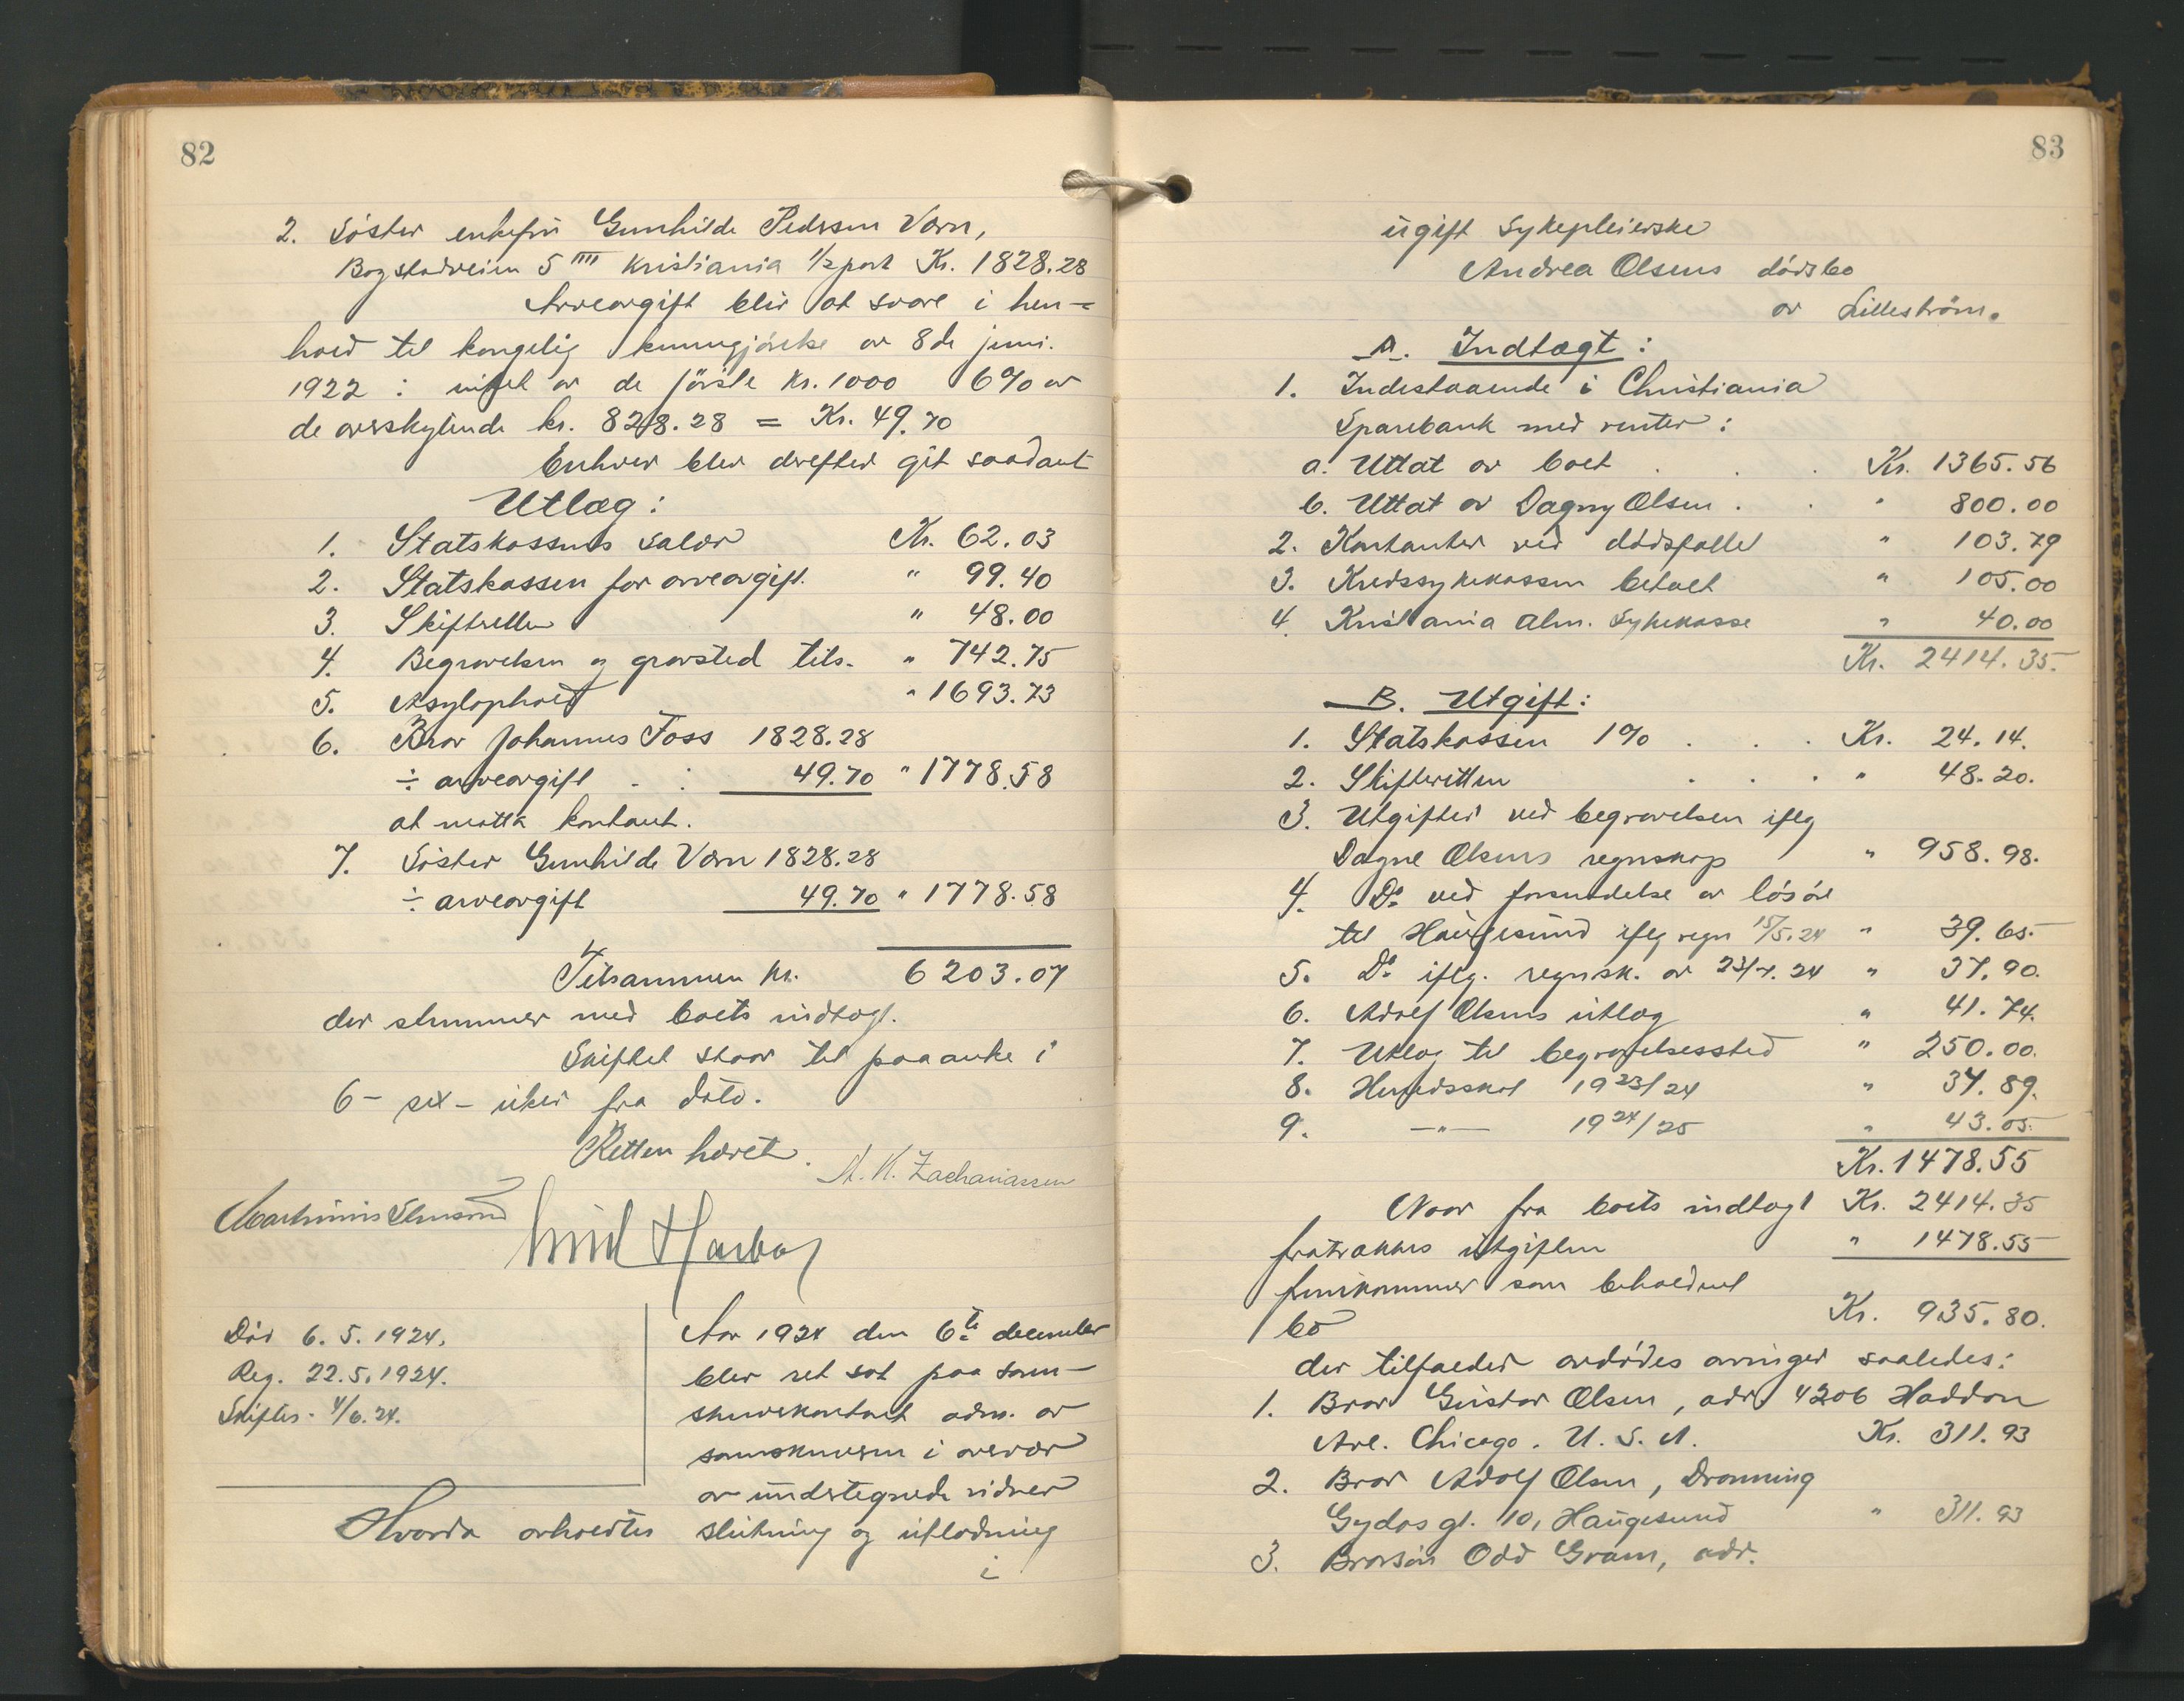 82
2. Søster enkefru Gunhilde Pedersen Værn,
Bogstadveien 5 IIII Kristiania 1/2 part Kr. 1828.28
Arveavgift blir at svare i hen=
hold til kongelig kunngjørelse av 8de juni.
1922 : intet av de første kr. 1000 6% av
de overskytende kr. 828.28 = Kr. 49.70
Enhver blev derefter git saadant
Utlæg:
1. Statskassens salær Kr. 62.03
2. Statskassen for arveavgift. " 99.40
3. Skifteretten " 48.00
4. Begravelsen og gravsted tils. " 742.75
5. Asylophold " 1693.73
6. Bror Johannes Foss 1828.28
÷ arveavgift . . 49.70 " 1778.58
at motta kontant.
7. Søster Gunhilde Værn 1828.28
÷ arveavgift 49.70 " 1778.58
Tilsammen kr. 6203.07
der stemmer med boets indtægt.
Skiftet staar til paaanke i
6 - sex - uker fra dato.
Retten hævet.
M. K. Zachariassen
Martinius
Emil
Død 6.5.1924.
Reg. 22.5.1924.
Skiftes. 4/6.24.
Aar 1924 den 6te december
blev ret sat paa soren-
skriverkontoret adm. av
sorenskriveren i overvær
av undertegnede vidner
Hvorda avholdtes slutning og utlodning
i
83
ugift sykepleierske
Andrea Olsens dødsbo
av Lillestrøm.
A. Indtægt:
1. Indestaaende i Christiania
Sparebank med renter:
a. Uttat av boet . . . Kr. 1365.56
b. Uttat av Dagny Olsen . . " 800.00
2. Kontanter ved dødsfallet " 103.79
3. Kredssykekassen betalt " 105.00
4. Kristiania alm. Sykekasse " 40.00
Kr. 2414.35.
B. Utgift:
1. Statskassen 1% . . . Kr. 24.14.
2. Skifteretten . . . " 48.20.
3. Utgifter ved begravelsen iflg
Dagne Olsens regnskap " 958.98.
4. Do ved forsendelse av løsøre
til Haugesund iflg regn 15/5.24 " 39.65.
5. Do iflg. regnsk. av 23/7.24 " 37.90.
6. Adolf Olsens utlæg " 41.74.
7. Utlæg til begravelsessted " 250.00.
8. Herredsskat 1923/24 " 34.89.
9. —"— 1924/25 " 43.05.
Kr. 1478.55
Naar fra boets indtægt Kr. 2414.35
fratrækkes utgiften " 1478.55
fremkommer som beholdent
bo Kr. 935.80.
der tilfalder avdødes arvinger saaledes:
1. Bror Gustav Olsen, adr. 4206 Haddon
Ave. Chicago. U.S.A. Kr. 311.93
2. Bror Adolf Olsen, Dronning
Gydas gt. 10, Haugesund " 311.93
3. Brorsøn Odd Gram, adr.